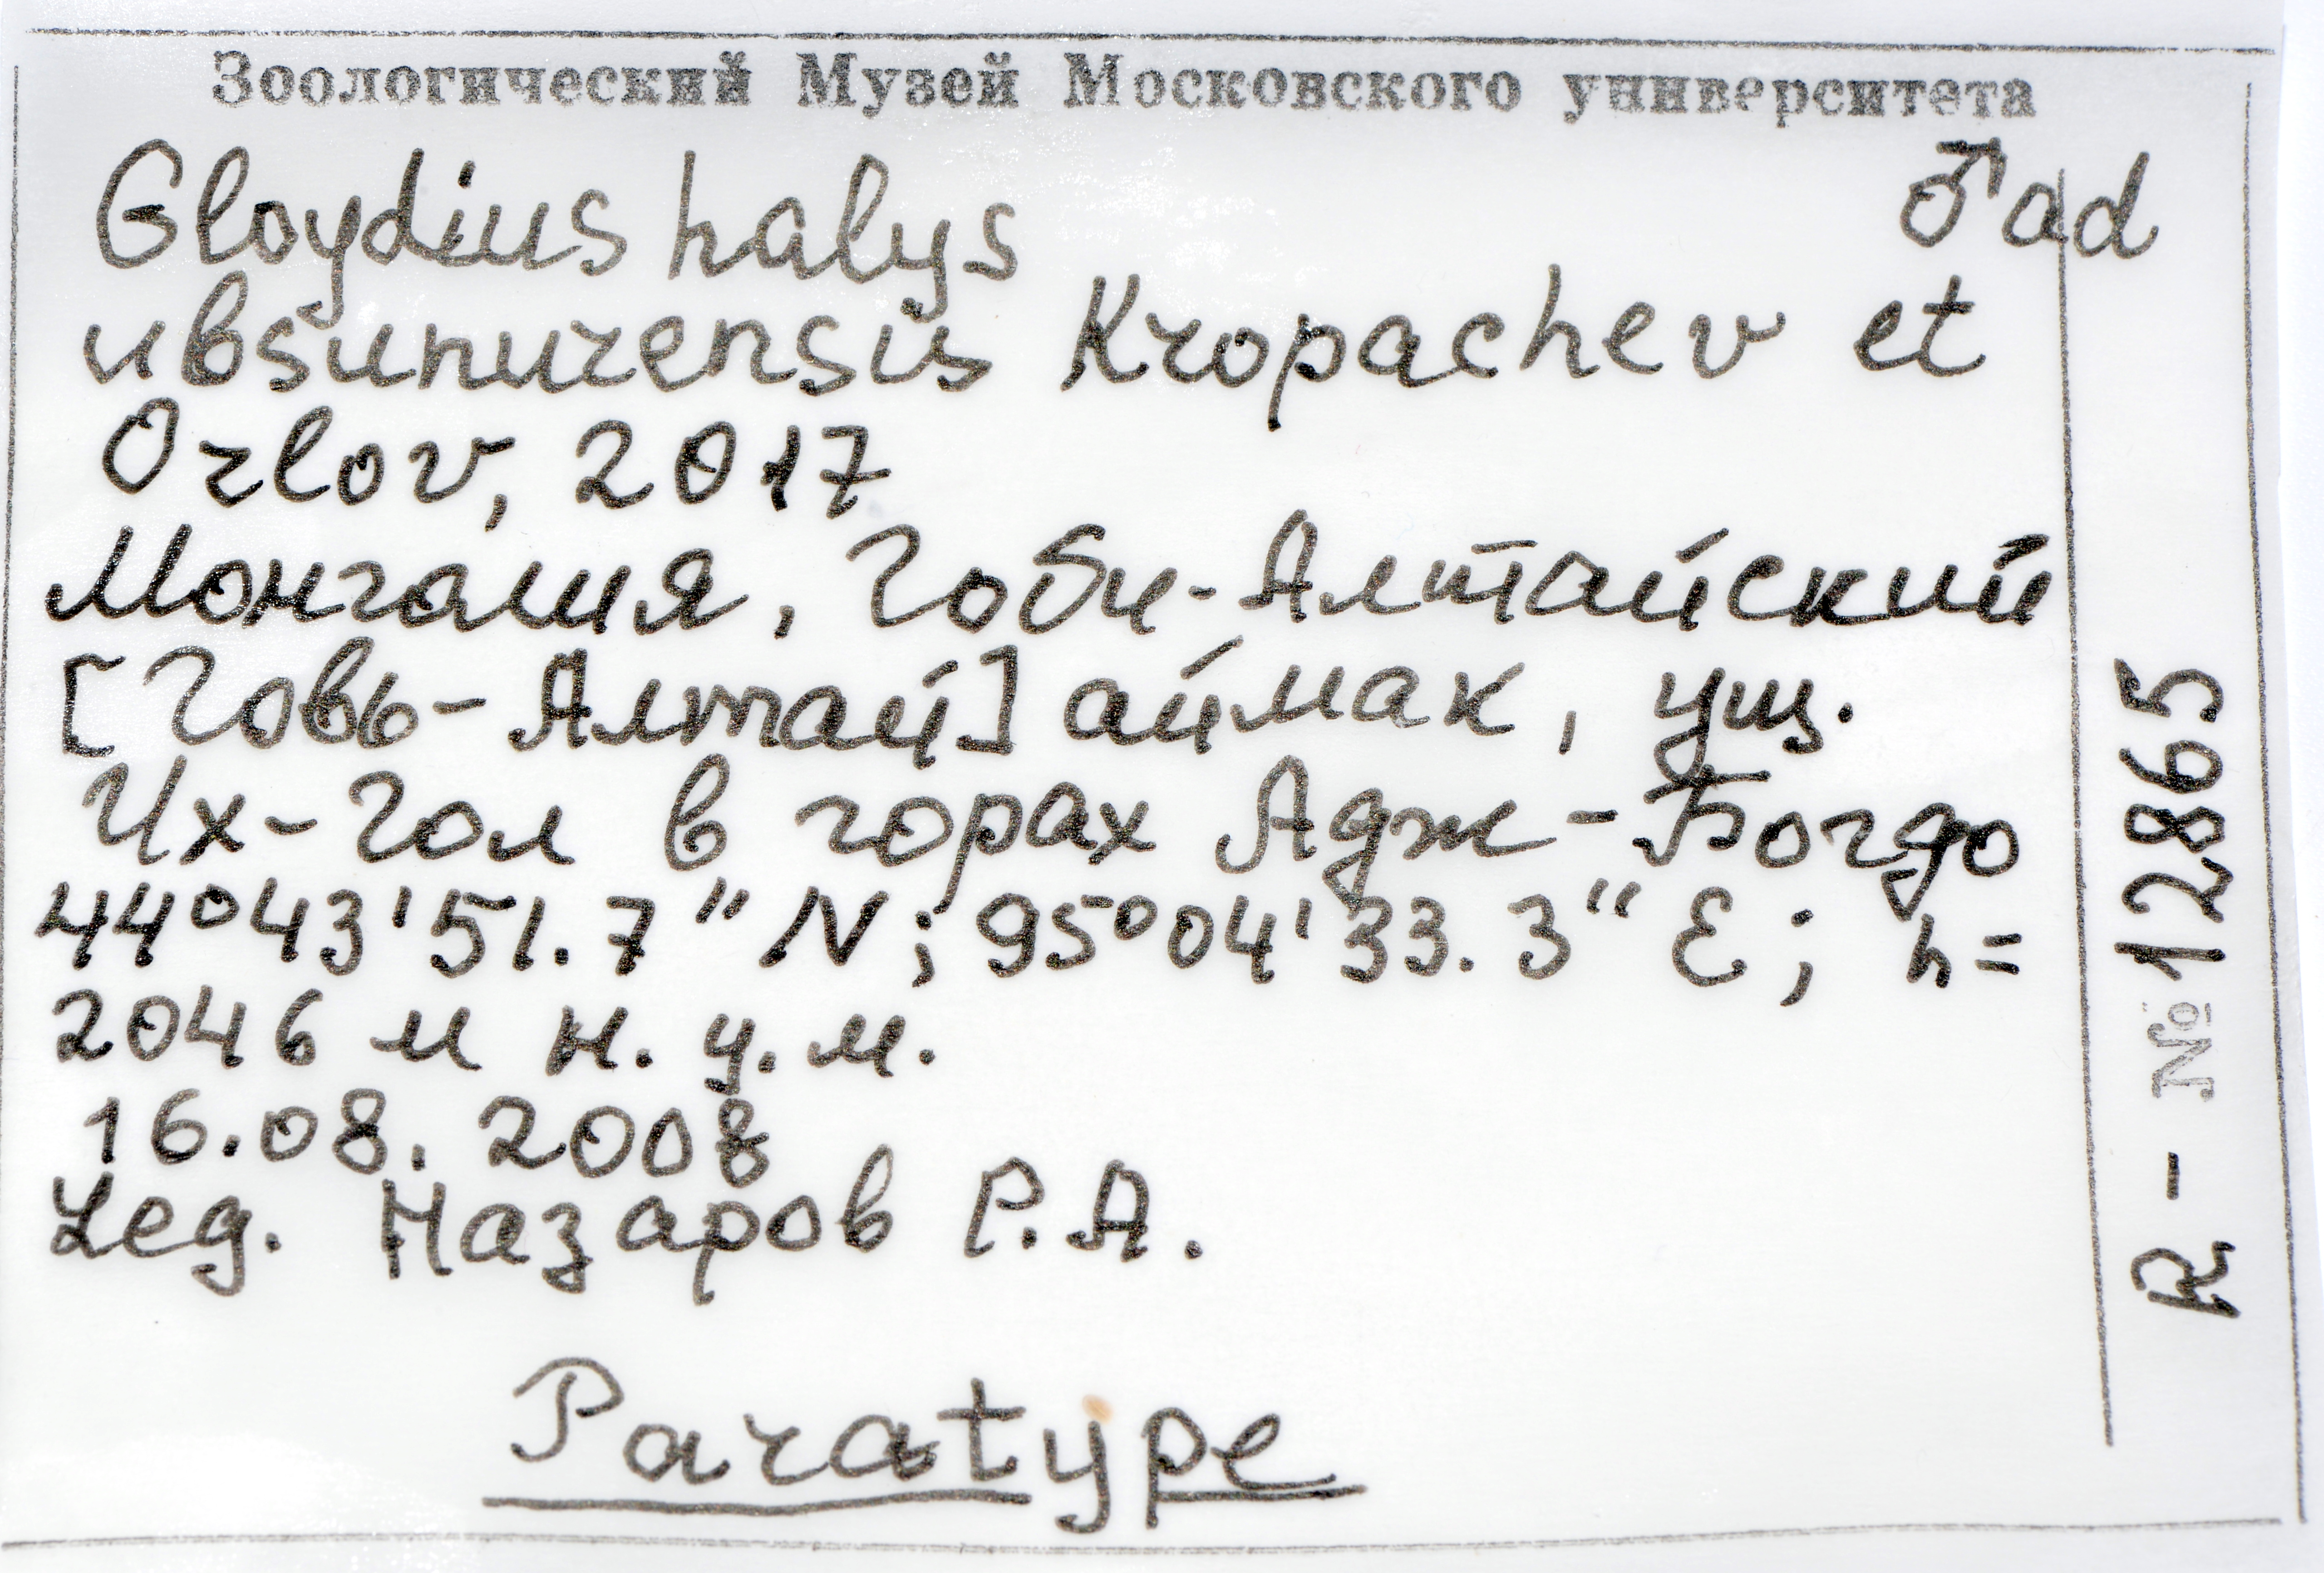 Зоологический Музей Московского университета
Gloydius halys ♂ad
ubsunurensis Kropachev et
Orlov, 2017
Монголия, Гоби-Алтайский
[Говь-Алтай] аймак, ущ.
Их-Гол в горах Адж-Богдо
44°43'51.7"N; 95°04'33.3"E; h=
2046 м н.у.м.
16.08.2008
Leg. Назаров Р.А.
Paratype
R-№12865